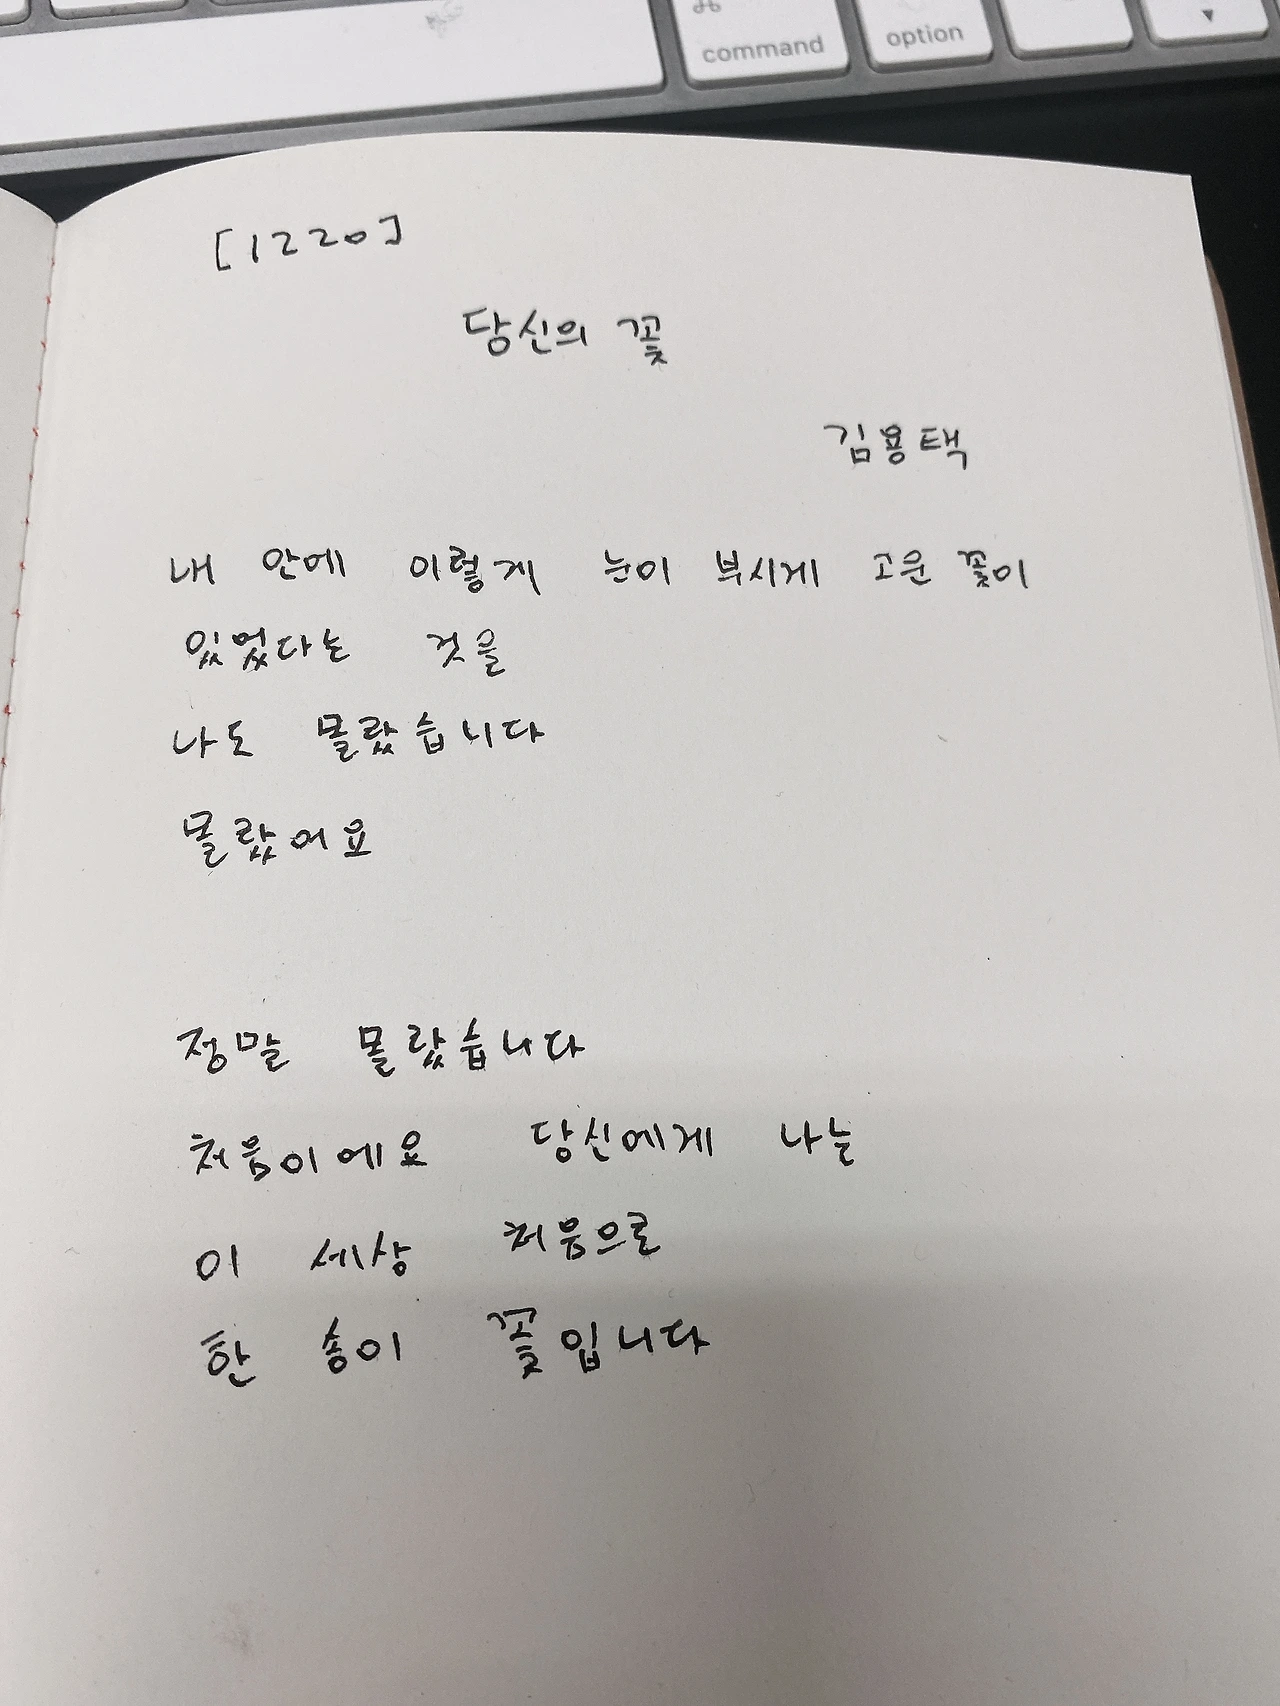 ⌘
command
option
▼
[1220]
당신의 꽃
김용택
내 안에 이렇게 눈이 부시게 고운 꽃이
있었다는 것을
나도 몰랐습니다
몰랐어요
정말 몰랐습니다
처음이에요 당신에게 나는
이 세상 처음으로
한 송이 꽃입니다